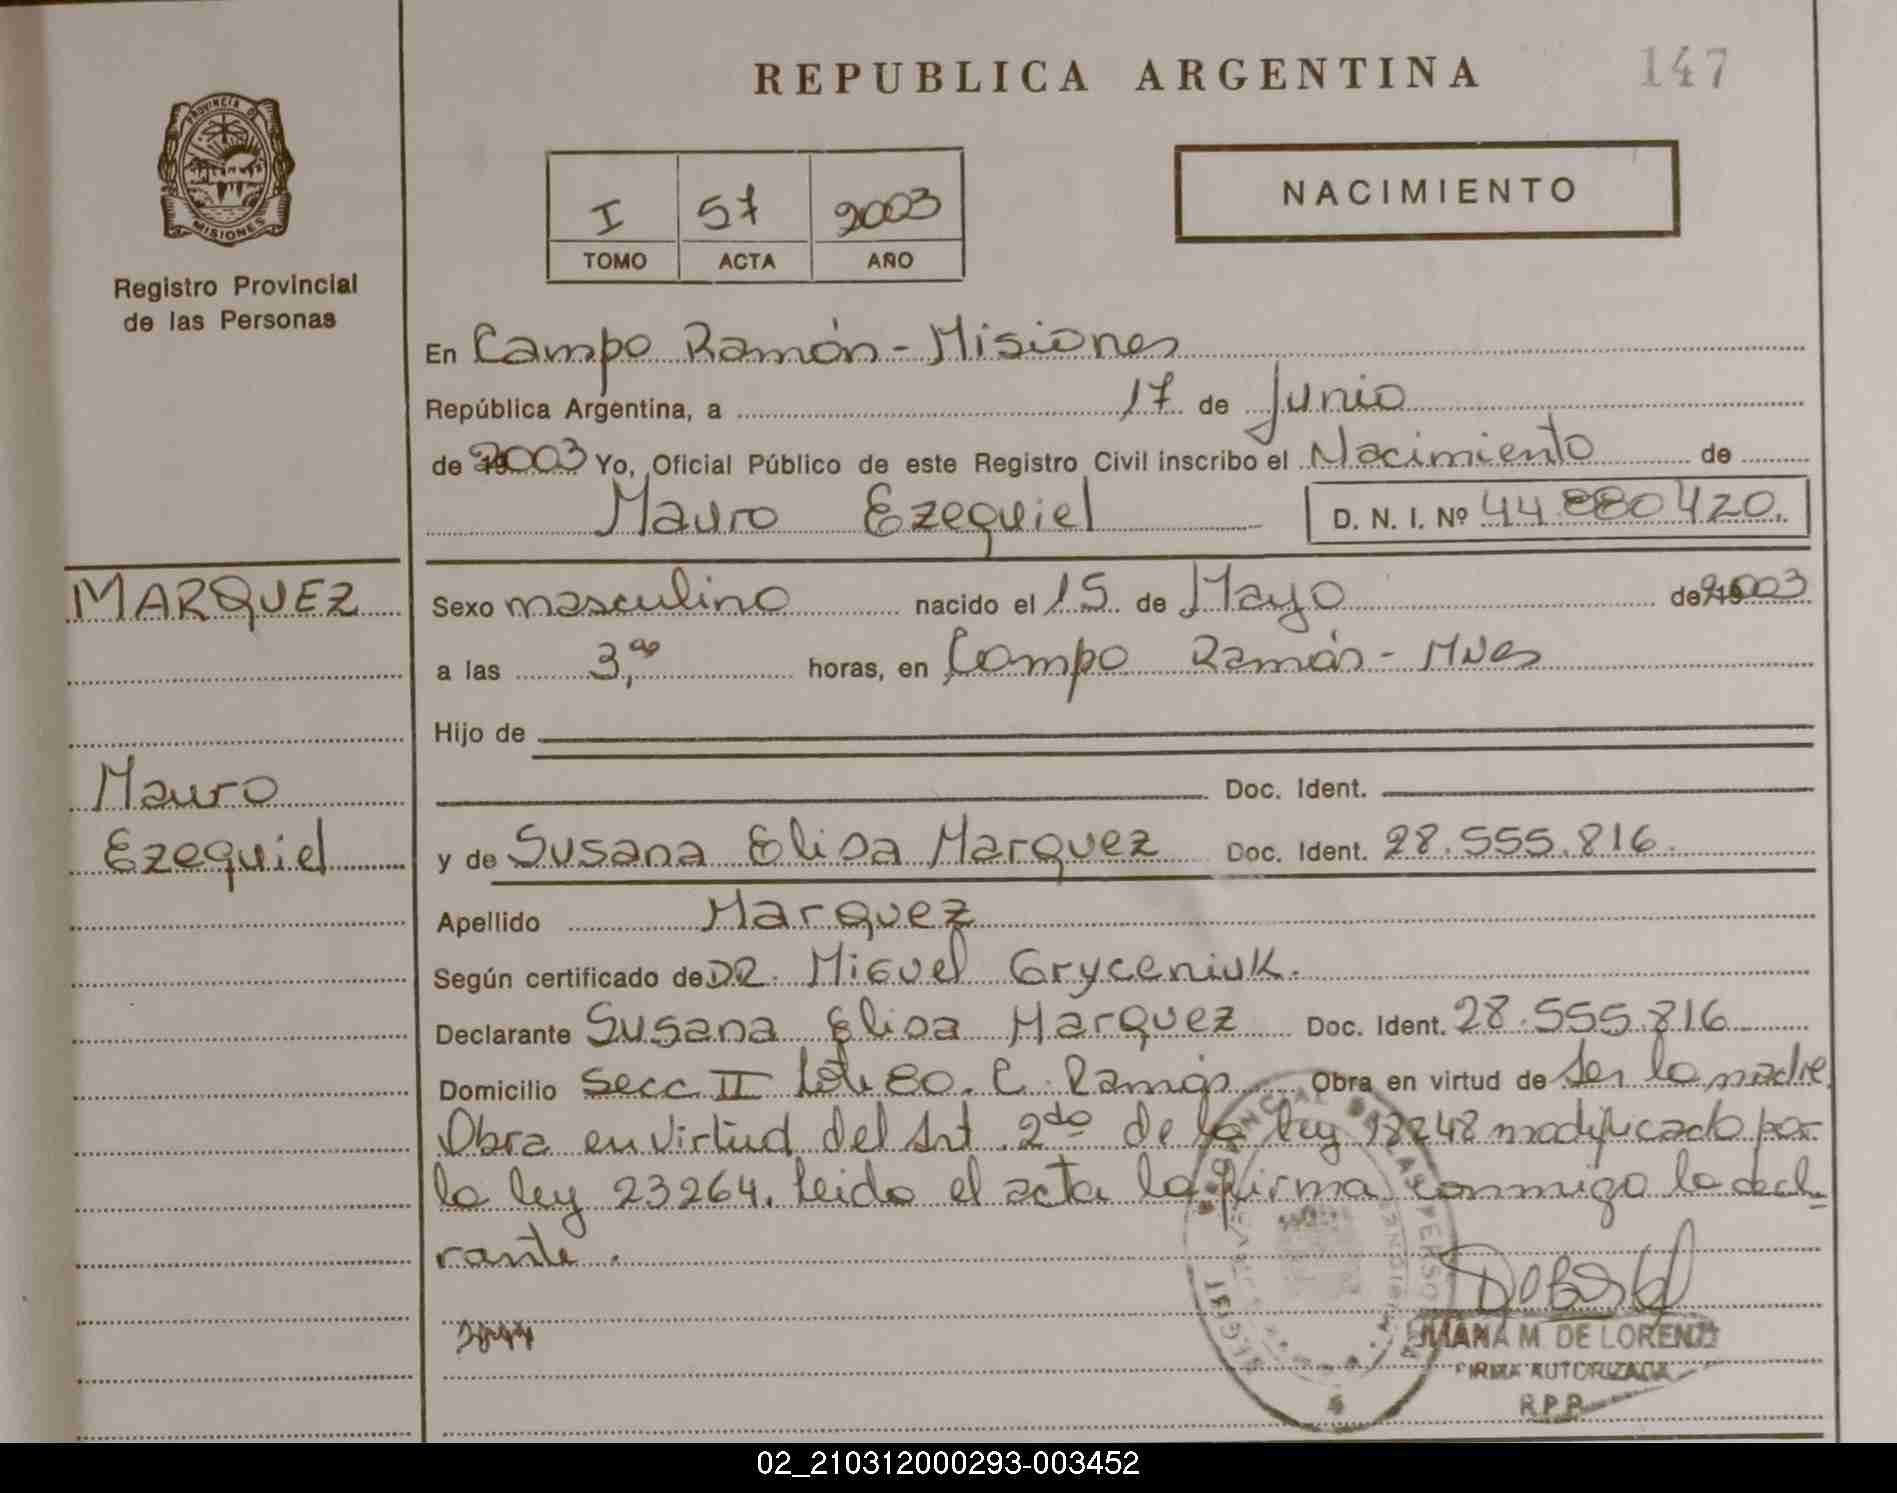 REPUBLICA ARGENTINA
147
PROVINCIA DE
MISIONES
Registro Provincial
de las Personas
I 57 2003
TOMO ACTA AÑO
NACIMIENTO
En Campo Ramón - Misiones
República Argentina, a 17 de Junio
de 2003 Yo, Oficial Público de este Registro Civil inscribo el Nacimiento de
Mauro Ezequiel D. N. I. Nº 44880420.
MARQUEZ
Mauro
Ezequiel
Sexo masculino nacido el 15 de Mayo de 2003
a las 3,00 horas, en Campo Ramón - Mnes
Hijo de
Doc. Ident.
y de Susana Elisa Marquez Doc. Ident. 28.555.816.
Apellido Marquez
Según certificado de DR. Miguel Gryceniuk.
Declarante Susana Elisa Marquez Doc. Ident. 28.555.816
Domicilio Secc II Lote 80. C. Ramón Obra en virtud de ser la madre.
Obra en virtud del Art. 2do de la ley 18248 modificado por
la ley 23264. Leida el acta la firma conmigo la decla-
rante.
JUANA M. DE LORENZI
FIRMA AUTORIZADA
R.P.P.
02_210312000293-003452